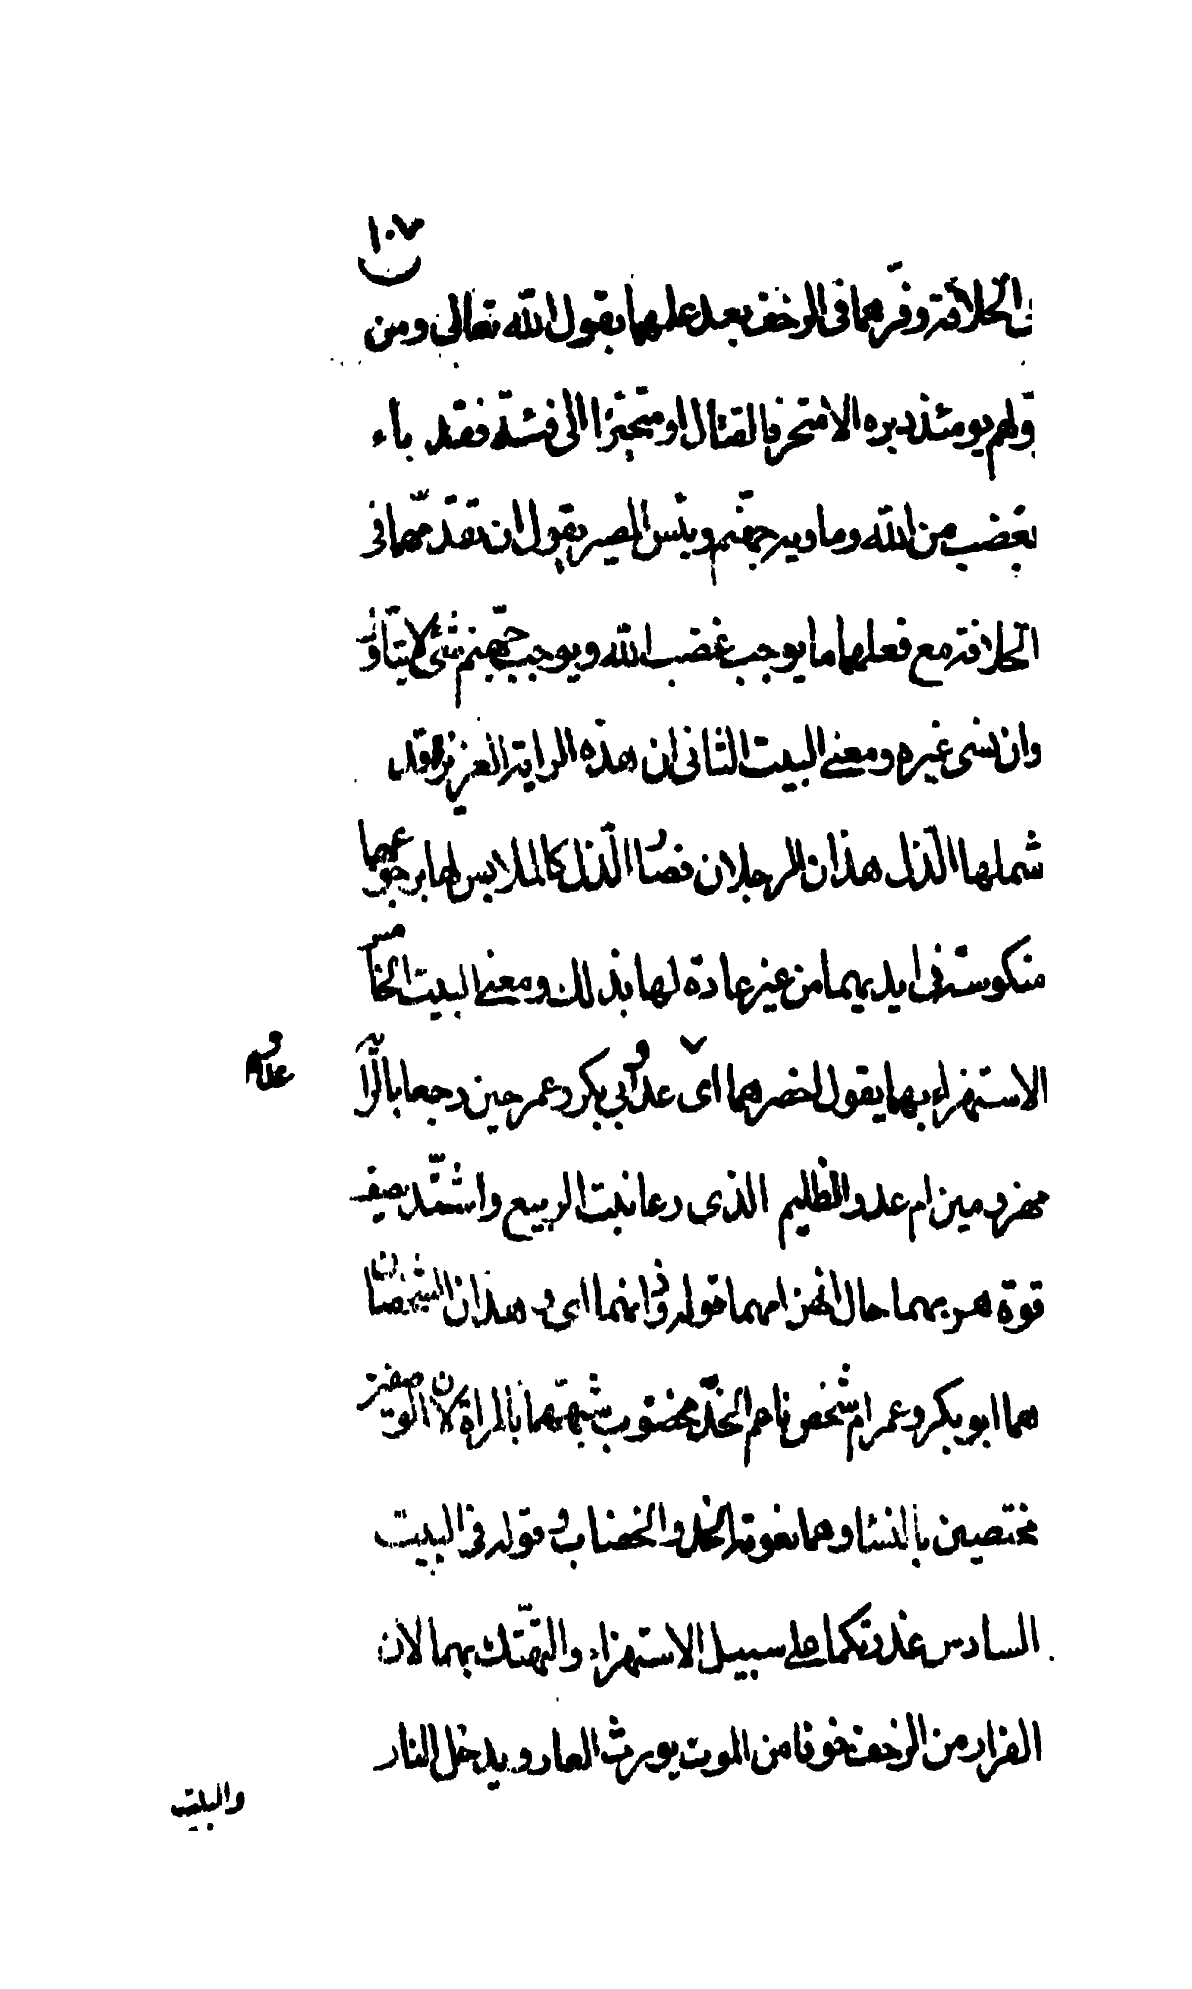 ١٠٧
الخلافة وفرهما فى الزحف بعد علمهما بقول الله تعالى ومن
يولهم يومئذ دبره الا متحرفا لقتال او متحيزا الى فئة فقد باء
بغضب من الله وماويه جهنم وبئس المصير يقول ان تقدمهما فى
الخلافة مع فعلهما ما يوجب غضب الله ويوجب جهنم شئ لا يتأتى
وان نسى غيره ومعنى البيت الثانى ان هذه الراية العزيزة قد
شملها الذل هذان الرجلان فصار الذل كالملابس لها برجوعهما
منكوسة فى ايديهما من غير عادة لها بذلك ومعنى البيت الخامس
الاستهزاء بهما يقول احضرهما اى عدو ابى بكر وعمر حين رجعا بالراية
عدو
مهزومين ام عدو الظليم الذى رعا نبت الربيع واشتد يصف
قوة هربهما حال انهزامهما قوله وانهما اى وهذان الشخصان
هما ابو بكر وعمر ام شخص ناعم الخد مخضوب شبههما بالمرأة لان الوصفين
مختصين بالنسا وهما نعومة الخد والخضاب وقوله فى البيت
السادس عذرتكما على سبيل الاستهزاء والتهتك بهما لان
الفرار من الزحف خوفا من الموت يورث العار ويدخل النار
والبيت